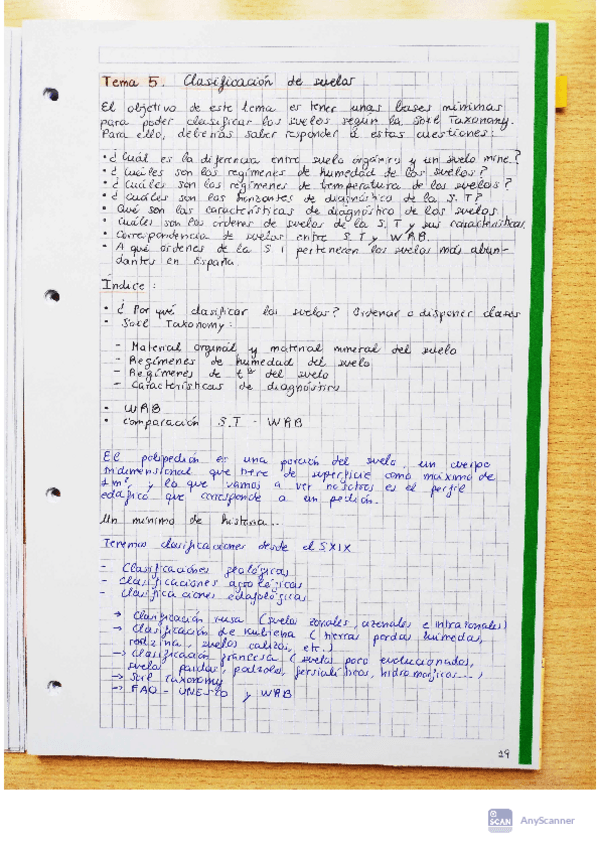 Tema 5. Clasificación de suelos
El objetivo de este tema es tener unas bases mínimas
para poder clasificar los suelos según la Soil Taxonomy.
Para ello, deberías saber responder a estas cuestiones:
• ¿Cuál es la diferencia entre suelo orgánico y un suelo mine.?
• ¿Cuáles son los regímenes de humedad de los suelos?
• ¿Cuáles son los regímenes de temperatura de los suelos?
• ¿Cuáles son los horizontes de diagnóstico de la S.T?
• Qué son las características de diagnóstico de los suelos
• Cuáles son los órdenes de suelos de la S.T y sus características.
• Correspondencia de suelos entre S.T y WRB.
• A qué órdenes de la S T pertenecen los suelos más abun-
dantes en España
Índice:
• ¿Por qué clasificar los suelos? Ordenar o disponer clases
• Soil Taxonomy:
- Material orgánico y material mineral del suelo
- Regímenes de humedad del suelo
- Regímenes de tª del suelo
- Características de diagnóstico
• WRB
• Comparación S.T - WRB
El polipedión es una porción del suelo, un cuerpo
tridimensional que tiene de superficie como máximo de
1m², y lo que vamos a ver nosotros es el perfil
edáfico que corresponde a un pedión.
Un mínimo de historia...
Tenemos clasificaciones desde el SXIX
- Clasificaciones geológicas
- Clasificaciones agrológicas
- Clasificaciones edafológicas
→ Clasificación rusa (suelos zonales, azonales e intrazonales)
→ Clasificación de Kubiena (tierras pardas húmedas,
rendzina, suelos calizos, etc.)
→ Clasificación francesa (suelos poco evolucionados,
suelos pardos, podzols, fersialíticos, hidromorfos...)
→ Soil Taxonomy
→ FAO - UNESCO y WRB
19
SCAN
AnyScanner